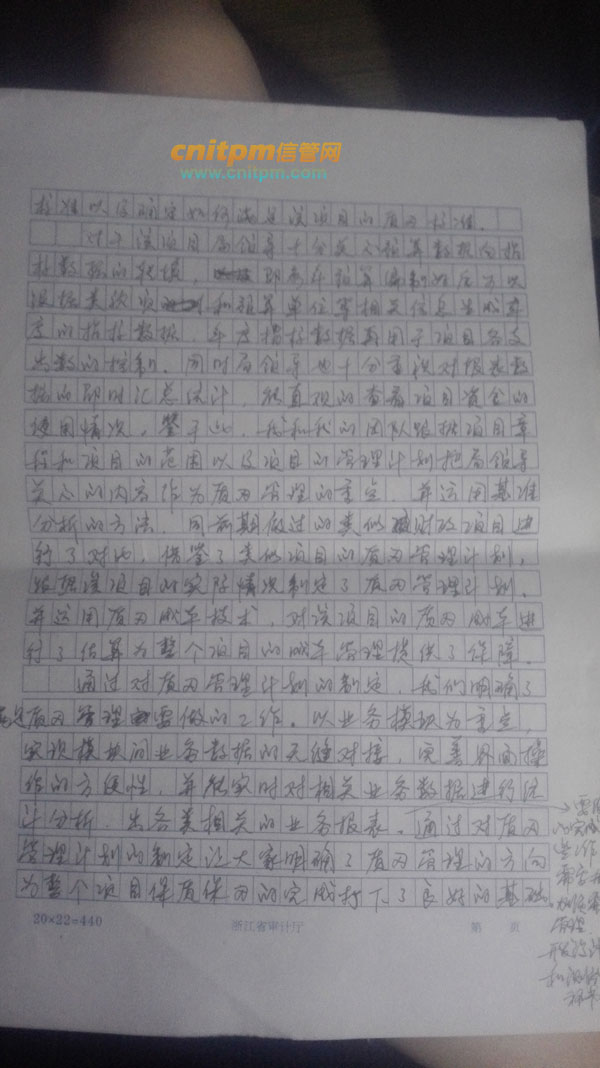 cnitpm信管网
www.cnitpm.com
标准以及确定如何满足该项目的质量标准。
对于该项目局领导十分关心预算数据向指
标数据的转换，即当年预算编制好后可以
根据类款项和预算单位等相关信息生成年
度的指标数据，年度指标数据再用于项目各支
出数的控制。同时局领导也十分重视对报表数
据的即时汇总统计，能直观的查看项目资金的
使用情况。鉴于此，我和我的团队根据项目章
程和项目的范围以及项目的管理计划把局领导
关心的内容作为质量管理的重点，并运用基准
分析的方法，同前期做过的类似财政项目进
行了对比，借鉴了类似项目的质量管理计划，
根据该项目的实际情况制定了质量管理计划。
并运用质量成本技术，对该项目的质量成本进
行了估算为整个项目的成本管理提供了保障。
通过对质量管理计划的制定，我们明确了
质量管理需做的工作。以业务模块为重点，
实现模块间业务数据的无缝对接，完善界面操
作的方便性，并能实时对相关业务数据进行统
计分析，出各类相关的业务报表。通过对质量
管理计划的制定让大家明确了质量管理的方向
为整个项目保质保量的完成打下了良好的基础。
20×22=440 浙江省审计厅 第 页